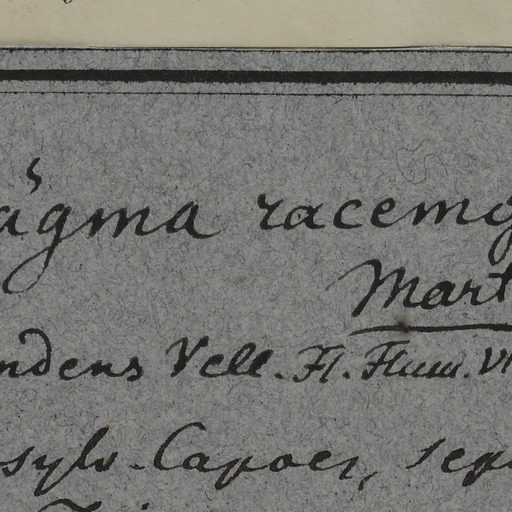 ágma racemo
Mart
ndens Vell. Fl. Flum. VI
sylv. Capoes, sep